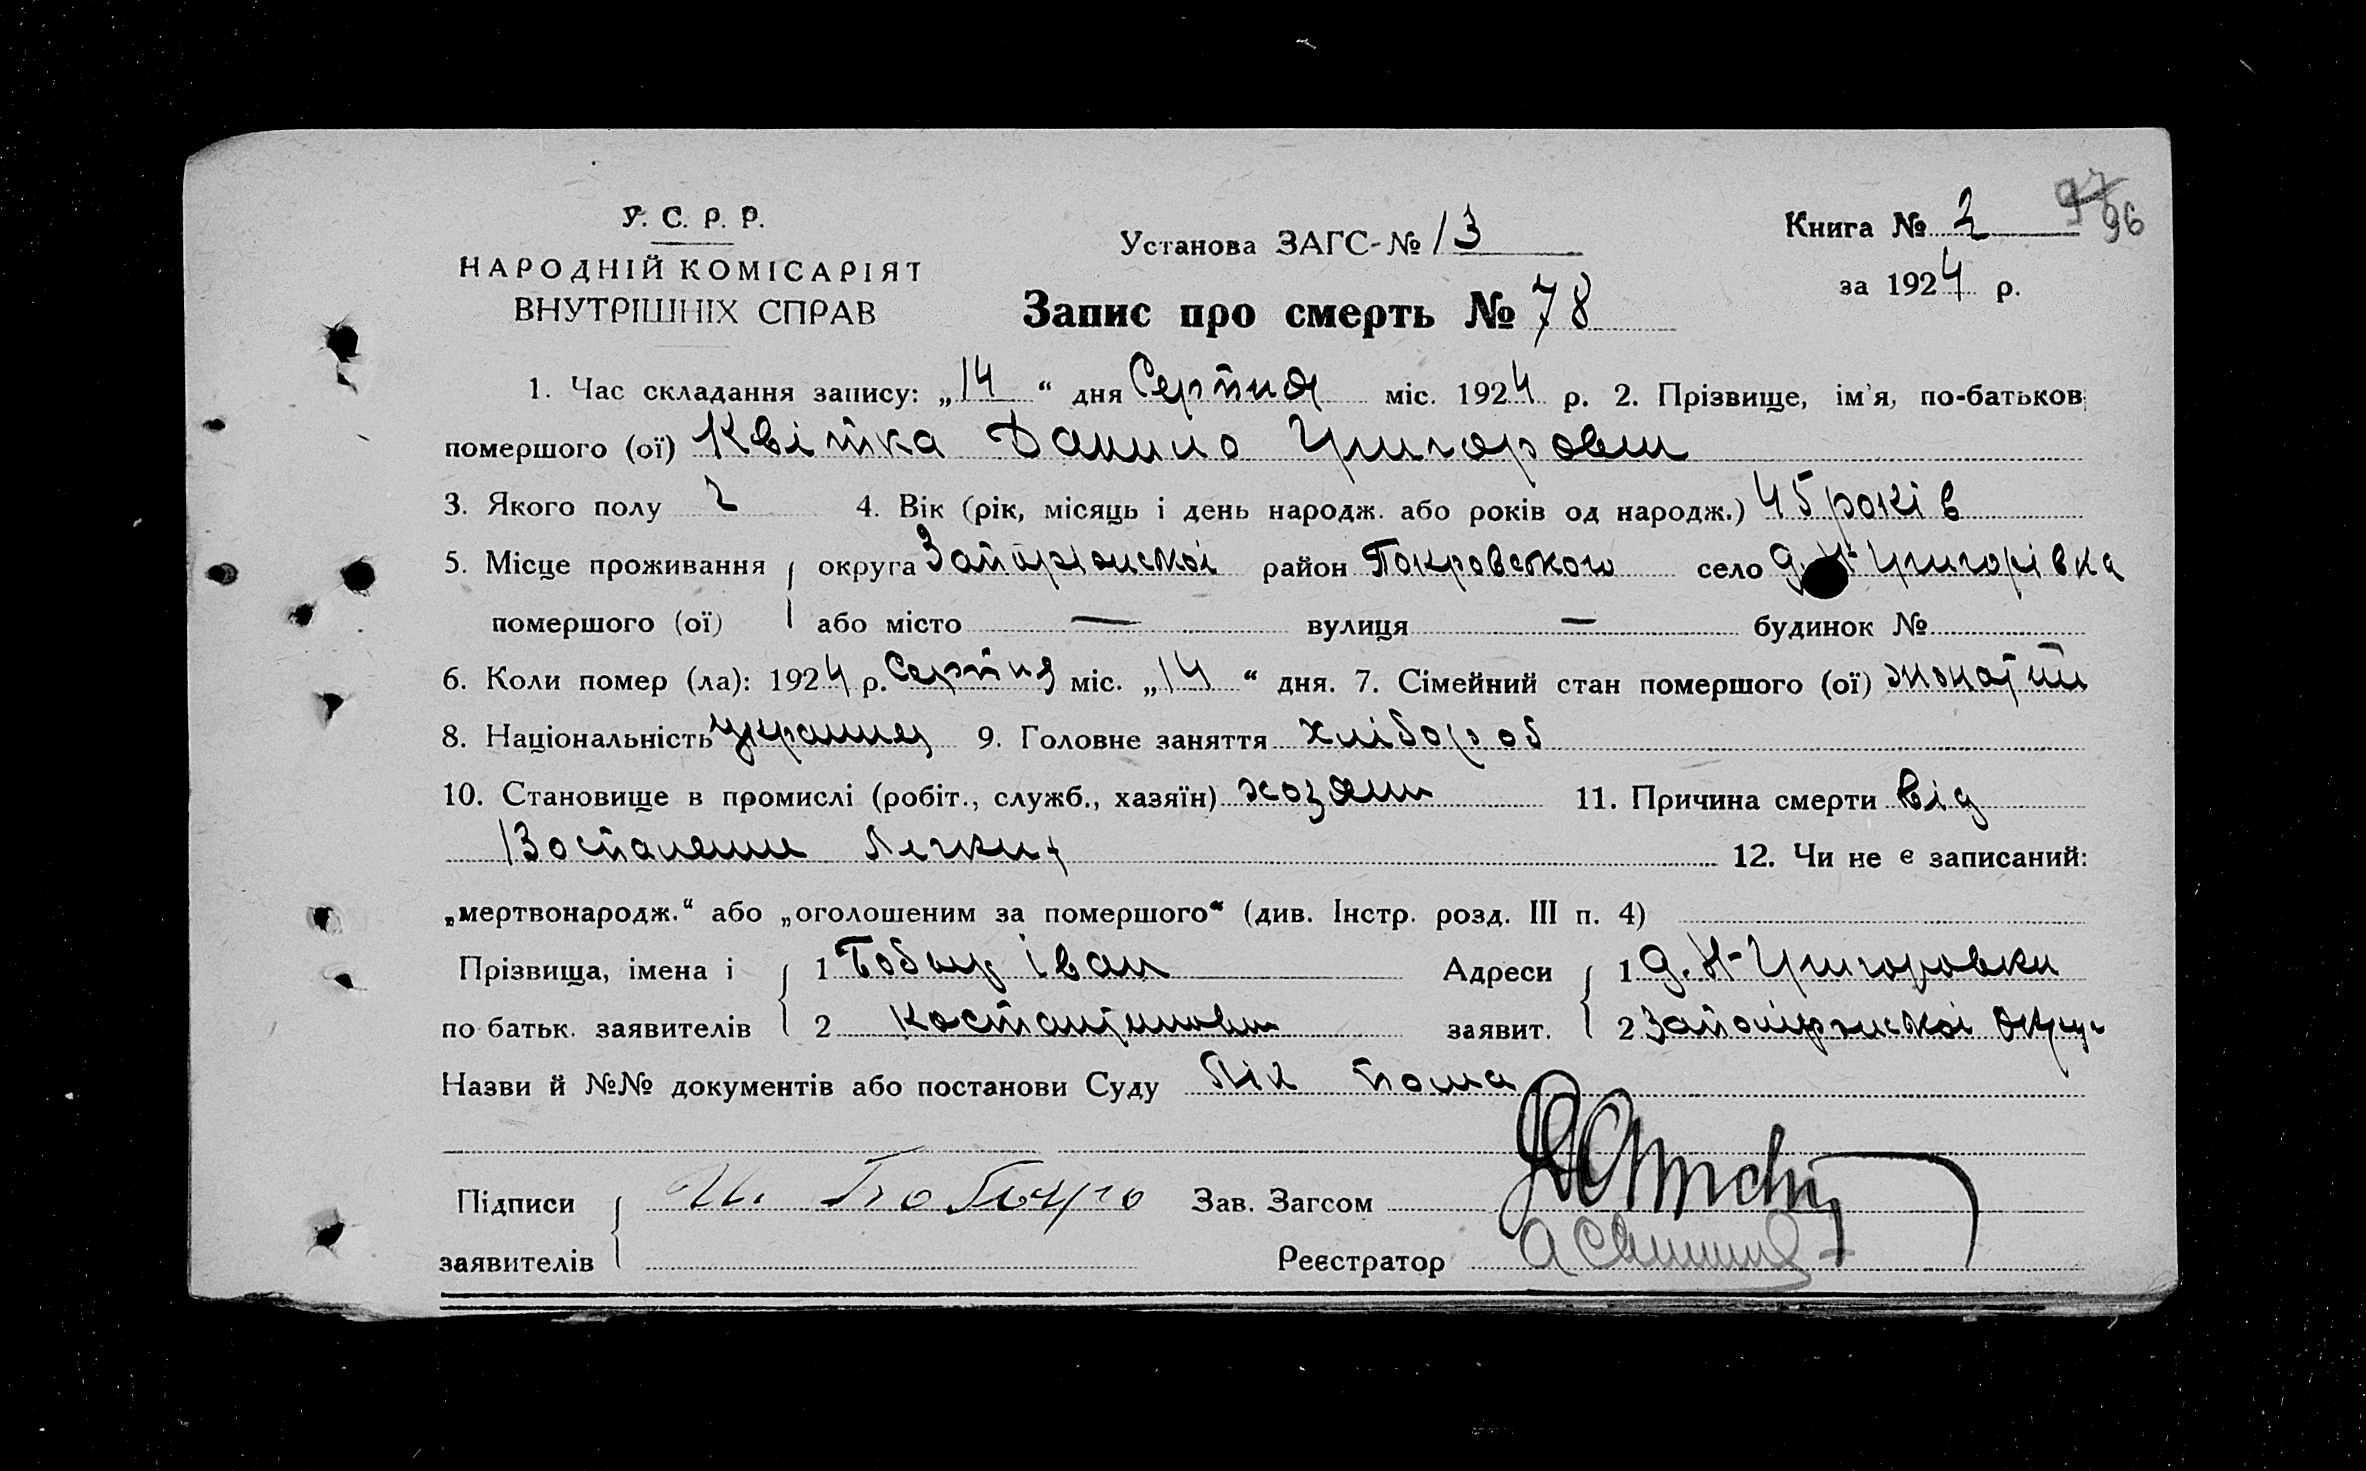 У. С. Р. Р.
НАРОДНІЙ КОМІСАРІЯТ
ВНУТРІШНІХ СПРАВ
Установа ЗАГС-№ 13
Запис про смерть № 78
Книга № 2
97 96
за 1924 р.
1. Час складання запису: „14“ дня Серпня міс. 1924 р. 2. Прізвище, ім'я, по-батьков
помершого (ої) Квітка Данило Григорович
3. Якого полу ч 4. Вік (рік, місяць і день народж. або років од народж.) 45 років
5. Місце проживання помершого (ої) округа Запоріжської район Покровського село д. Н-Григорівка
або місто — вулиця — будинок №
6. Коли помер (ла): 1924 р. Серпня міс. „14“ дня. 7. Сімейний стан помершого (ої) жонатий
8. Національність українец 9. Головне заняття хлібороб
10. Становище в промислі (робіт., служб., хазяїн) хозяин 11. Причина смерти від
Воспаление Легких
12. Чи не є записаний:
„мертвонародж.“ або „оголошеним за помершого“ (див. Інстр. розд. III п. 4)
Прізвища, імена і по батьк. заявителів 1 Іван
2 Костантинович
Адреси заявит. 1 д. Н-Григоровки
2 Запоріжської Округи
Назви й №№ документів або постанови Суду
Підписи заявителів
Зав. Загсом
Реєстратор